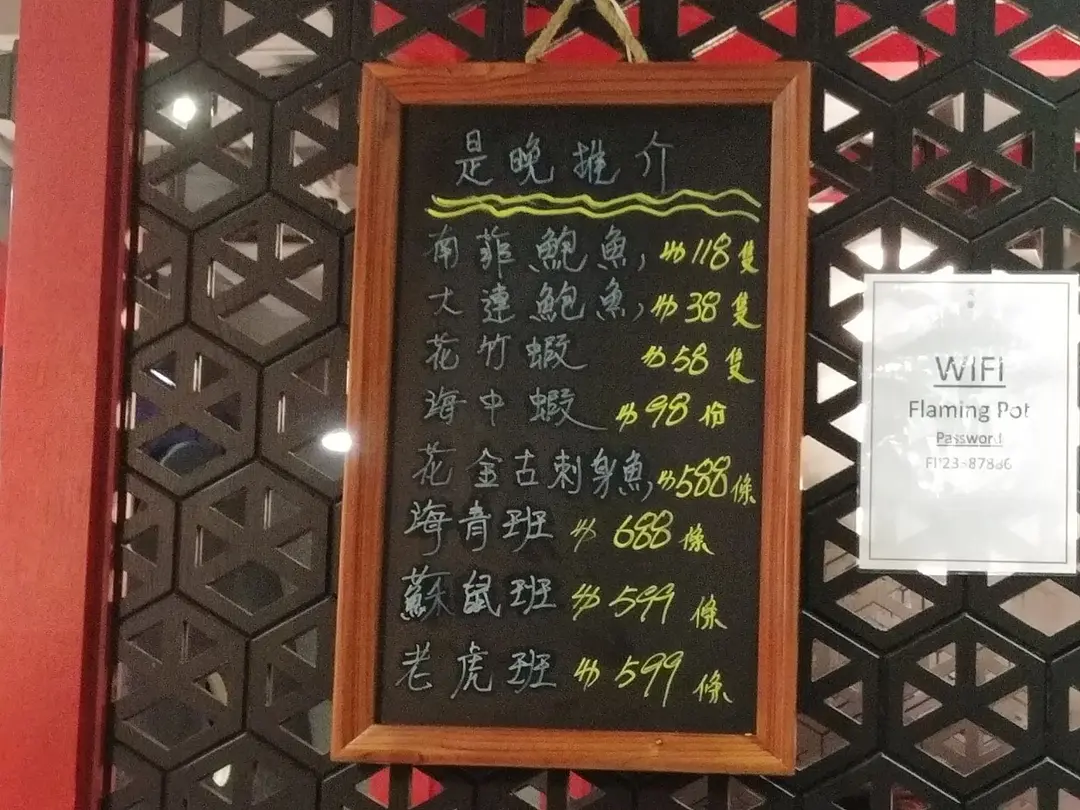 是晚推介
南菲鮑魚, $118隻
大連鮑魚, $38隻
花竹蝦 $58隻
海中蝦 $98份
花金古刺身魚, $588條
海青班 $688條
蘇鼠班 $599條
老虎班 $599條
WIFI
Flaming Pot
Password